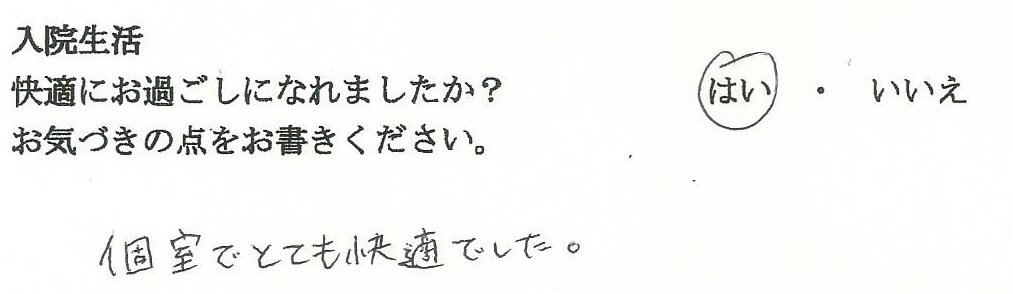 入院生活
快適にお過ごしになれましたか？ はい ・ いいえ
お気づきの点をお書きください。
個室でとても快適でした。